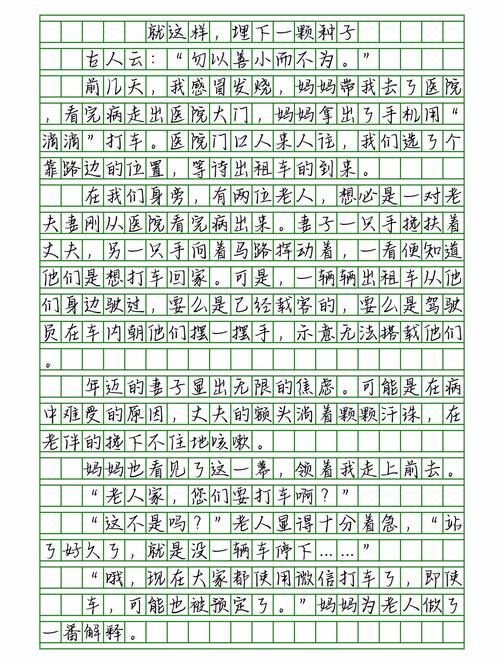 就这样，埋下一颗种子
古人云：“勿以善小而不为。”
前几天，我感冒发烧，妈妈带我去了医院
，看完病走出医院大门，妈妈拿出了手机用“
滴滴”打车。医院门口人来人往，我们选了个
靠路边的位置，等待出租车的到来。
在我们身旁，有两位老人，想必是一对老
夫妻刚从医院看完病出来。妻子一只手搀扶着
丈夫，另一只手向着马路挥动着，一看便知道
他们是想打车回家。可是，一辆辆出租车从他
们身边驶过，要么是已经载客的，要么是驾驶
员在车内朝他们摆一摆手，示意无法搭载他们
。
年迈的妻子显出无限的焦虑。可能是在病
中难受的原因，丈夫的额头淌着颗颗汗珠，在
老伴的搀下不住地咳嗽。
妈妈也看见了这一幕，领着我走上前去。
“老人家，您们要打车啊？”
“这不是吗？”老人显得十分着急，“站
了好久了，就是没一辆车停下……”
“哦，现在大家都使用微信打车了，即使
车，可能也被预定了。”妈妈为老人做了
一番解释。